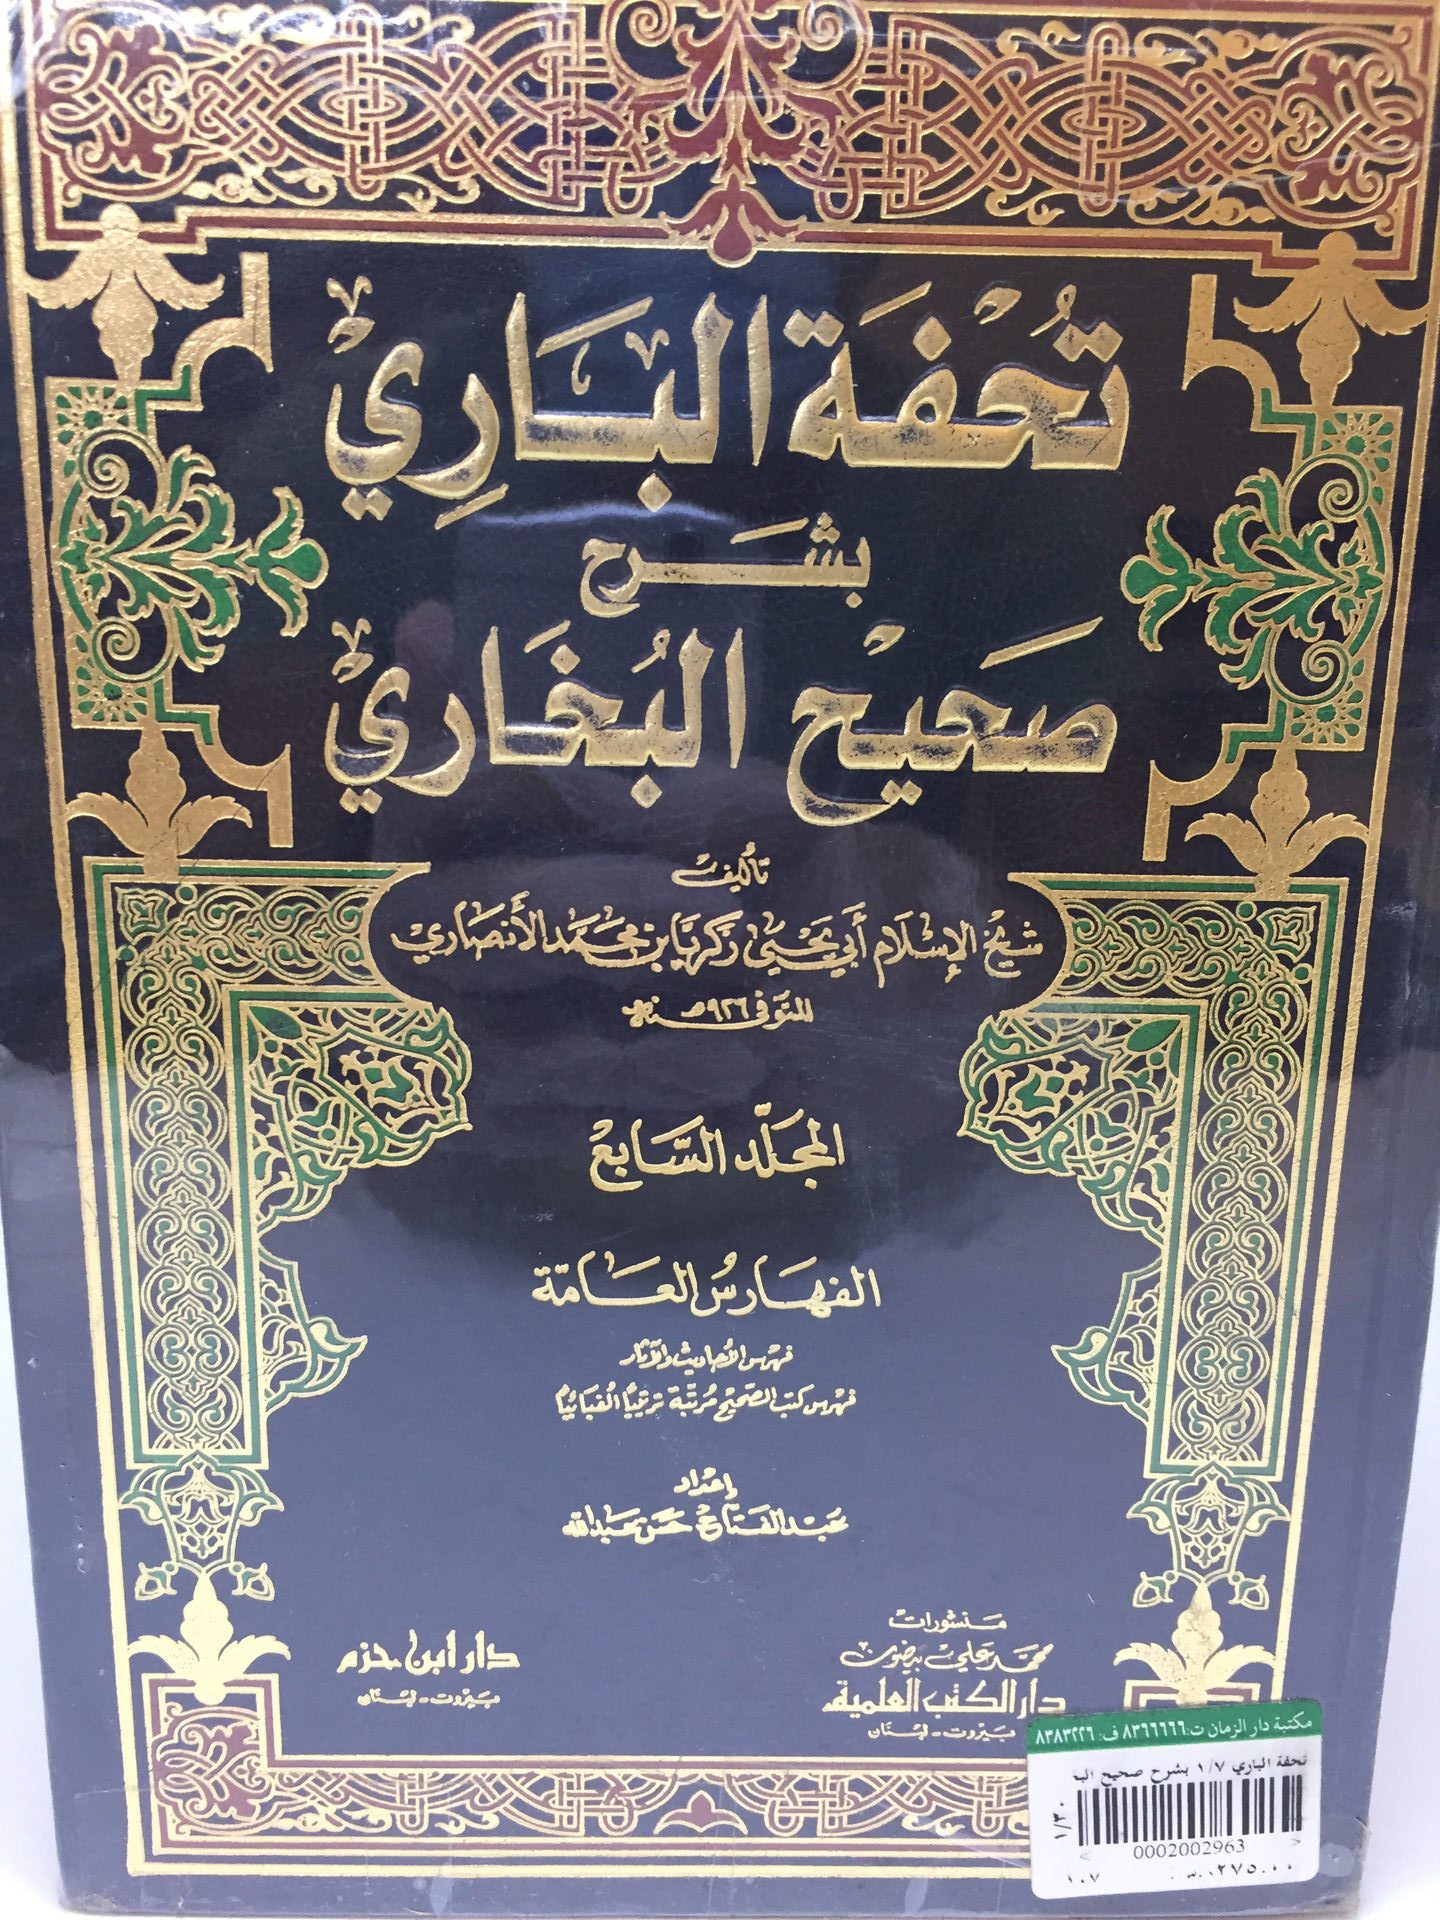 تُحْفَة البَارِي
بشرح
صَحِيْح البُخَاري
تأليف
شيخ الإسلام أبي يحيى زكريا بن محمد الأنصاري
المتوفى سنة ٩٢٦ هـ
المجلّد السّابع
الفهارسُ العامّة
فهرس الأحاديث والآثار
فهرس كتب الصحيح مُرتّبة ترتيبًا ألفبائيًا
إعداد
عبد الفتاح حسن عبد الله
منشورات
محمد علي بيضون
دار الكتب العلمية
بيروت - لبنان
دار ابن حزم
بيروت - لبنان
مكتبة دار الزمان ت: ٨٣٦٦٦٦٦ ف: ٨٣٨٣٢٢٦
تحفة الباري ١/٧ بشرح صحيح الب
١/٣٠
0002002963
١٠٧